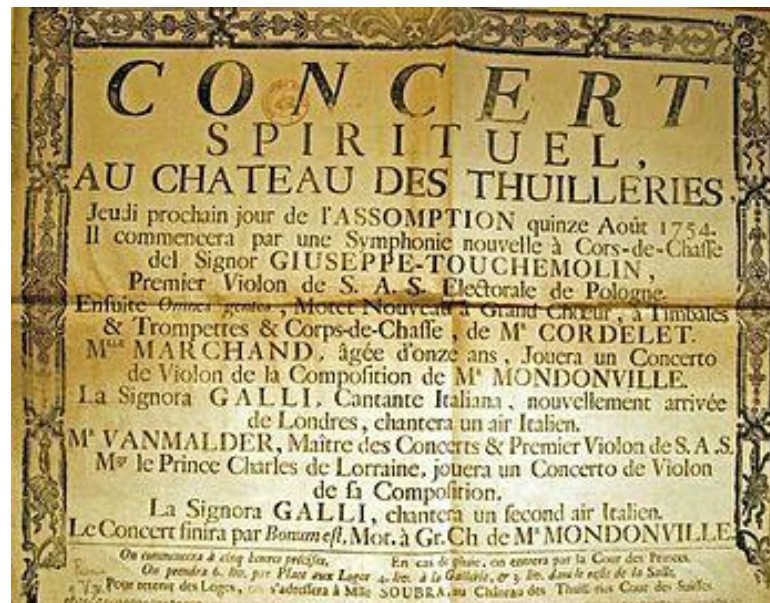 CONCERT
SPIRITUEL,
AU CHATEAU DES THUILLERIES,
Jeudi prochain jour de l'ASSOMPTION quinze Août 1754.
Il commencera par une Symphonie nouvelle à Cors-de-Chasse
del Signor GIUSEPPE-TOUCHEMOLIN,
Premier Violon de S. A. S. Electorale de Pologne.
Ensuite Omnes gentes, Motet Nouveau à Grand Chœur, à Timbales
& Trompettes & Corps-de-Chasse, de Mr. CORDELET.
Mlle MARCHAND, âgée d'onze ans, Jouera un Concerto
de Violon de la Composition de Mr. MONDONVILLE.
La Signora GALLI, Cantante Italiana, nouvellement arrivée
de Londres, chantera un air Italien.
Mr. VANMALDER, Maître des Concerts & Premier Violon de S. A. S.
Mgr le Prince Charles de Lorraine, jouera un Concerto de Violon
de sa Composition.
La Signora GALLI, chantera un second air Italien.
Le Concert finira par Bonum est, Mot. à Gr. Ch. de Mr. MONDONVILLE.
On commencera à cinq heures précises, En cas de pluie, on entrera par la Cour des Princes.
On prendra 6. liv. par Place aux Loges 4. liv. à la Gallerie, & 3. liv. dans le reste de la Salle.
Pour retenir des Loges, on s'adressera à Mlle SOUBRA, au Château des Thuilleries Cour des Suisses.